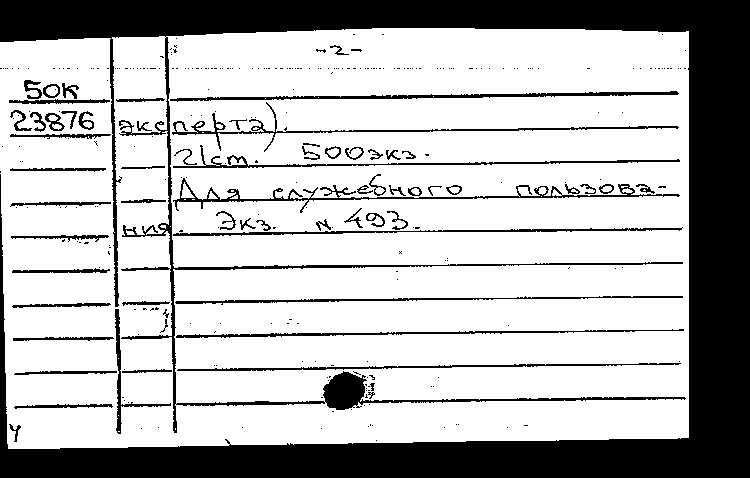 -2-
50к
23876 эксперта).
21ст. 500экз.
Для служебного пользова-
ния. Экз. N 493.